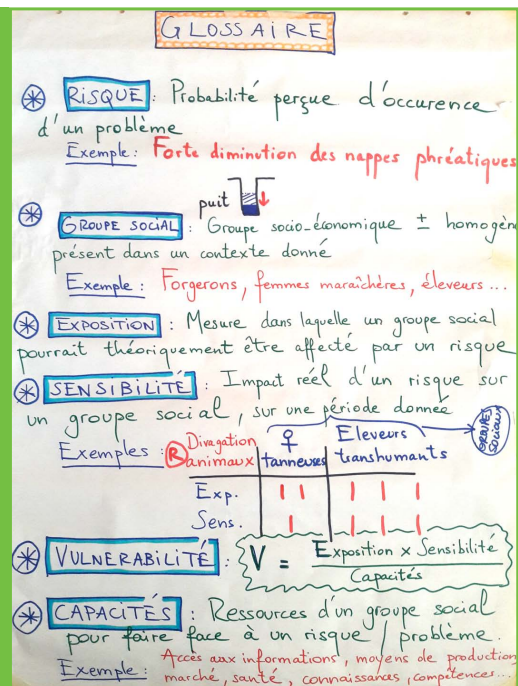 GLOSSAIRE
RISQUE : Probabilité perçue d'occurence
d'un problème
Exemple : Forte diminution des nappes phréatiques
puit
GROUPE SOCIAL : Groupe socio-économique ± homogèn
présent dans un contexte donné
Exemple : Forgerons, femmes maraîchères, éleveurs ...
EXPOSITION : Mesure dans laquelle un groupe social
pourrait théoriquement être affecté par un risque
SENSIBILITÉ : Impact réel d'un risque sur
un groupe social, sur une période donnée
GROUPES SOCIAUX
Exemples : R Divagation animaux | ♀ tanneuses | Eleveurs transhumants
Exp. | I I | I I I
Sens. | I | I I I
VULNERABILITÉ : V = Exposition x Sensibilité
Capacités
CAPACITÉS : Ressources d'un groupe social
pour faire face à un risque / problème.
Exemple : Accès aux informations, moyens de production
marché, santé, connaissances, compétences...